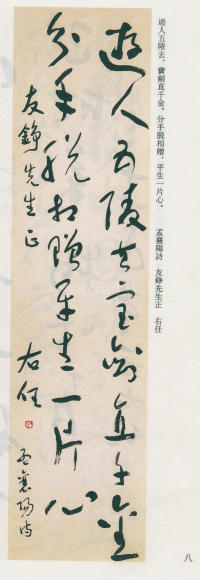 遊人五陵去，寶劍直千金。分手脱相贈，平生一片心。　孟襄陽詩　友錚先生正　右任
遊人五陵去寶劍直千金
分手脱相贈平生一片心
友錚先生正
右任
孟襄陽詩
八